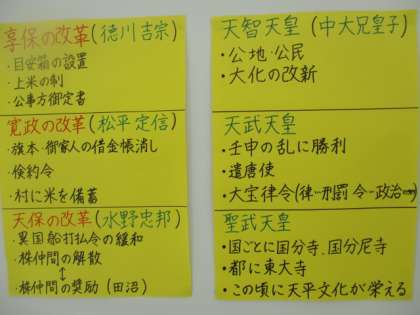 享保の改革(徳川吉宗)
・目安箱の設置
・上米の制
・公事方御定書
寛政の改革(松平定信)
・旗本・御家人の借金帳消し
・倹約令
・村に米を備蓄
天保の改革(水野忠邦)
・異国船打払令の緩和
・株仲間の解散
↕
・株仲間の奨励(田沼)
天智天皇(中大兄皇子)
・公地・公民
・大化の改新
天武天皇
・壬申の乱に勝利
・遣唐使
・大宝律令(律―刑罰 令―政治→)
聖武天皇
・国ごとに国分寺、国分尼寺
・都に東大寺
・この頃に天平文化が栄える